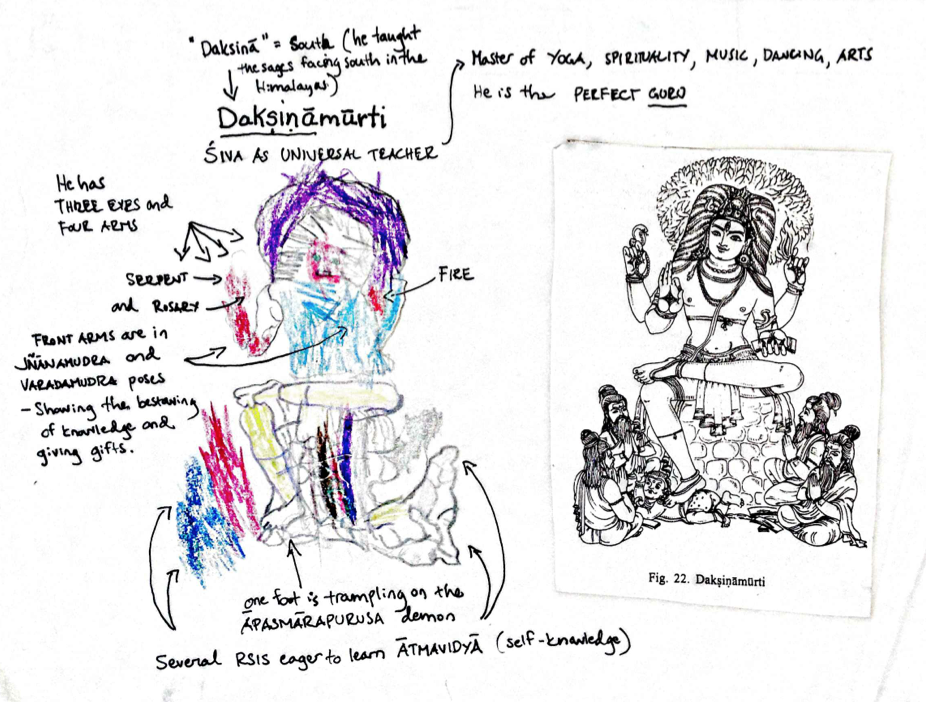 "Daksinā" = South (he taught
the sages facing south in the
Himalayas)
Dakṣiṇāmūrti
ŚIVA AS UNIVERSAL TEACHER
Master of YOGA, SPIRITUALITY, MUSIC, DANCING, ARTS
He is the PERFECT GURU
He has
THREE EYES and
FOUR ARMS
SERPENT
and ROSARY
FIRE
FRONT ARMS are in
JÑĀNAMUDRA and
VARADAMUDRA poses
- Showing the bestowing
of knowledge and
giving gifts.
one foot is trampling on the
ĀPASMĀRAPURUSA demon
Several RSIS eager to learn ĀTMAVIDYĀ (self-knowledge)
Fig. 22. Dakṣiṇāmūrti